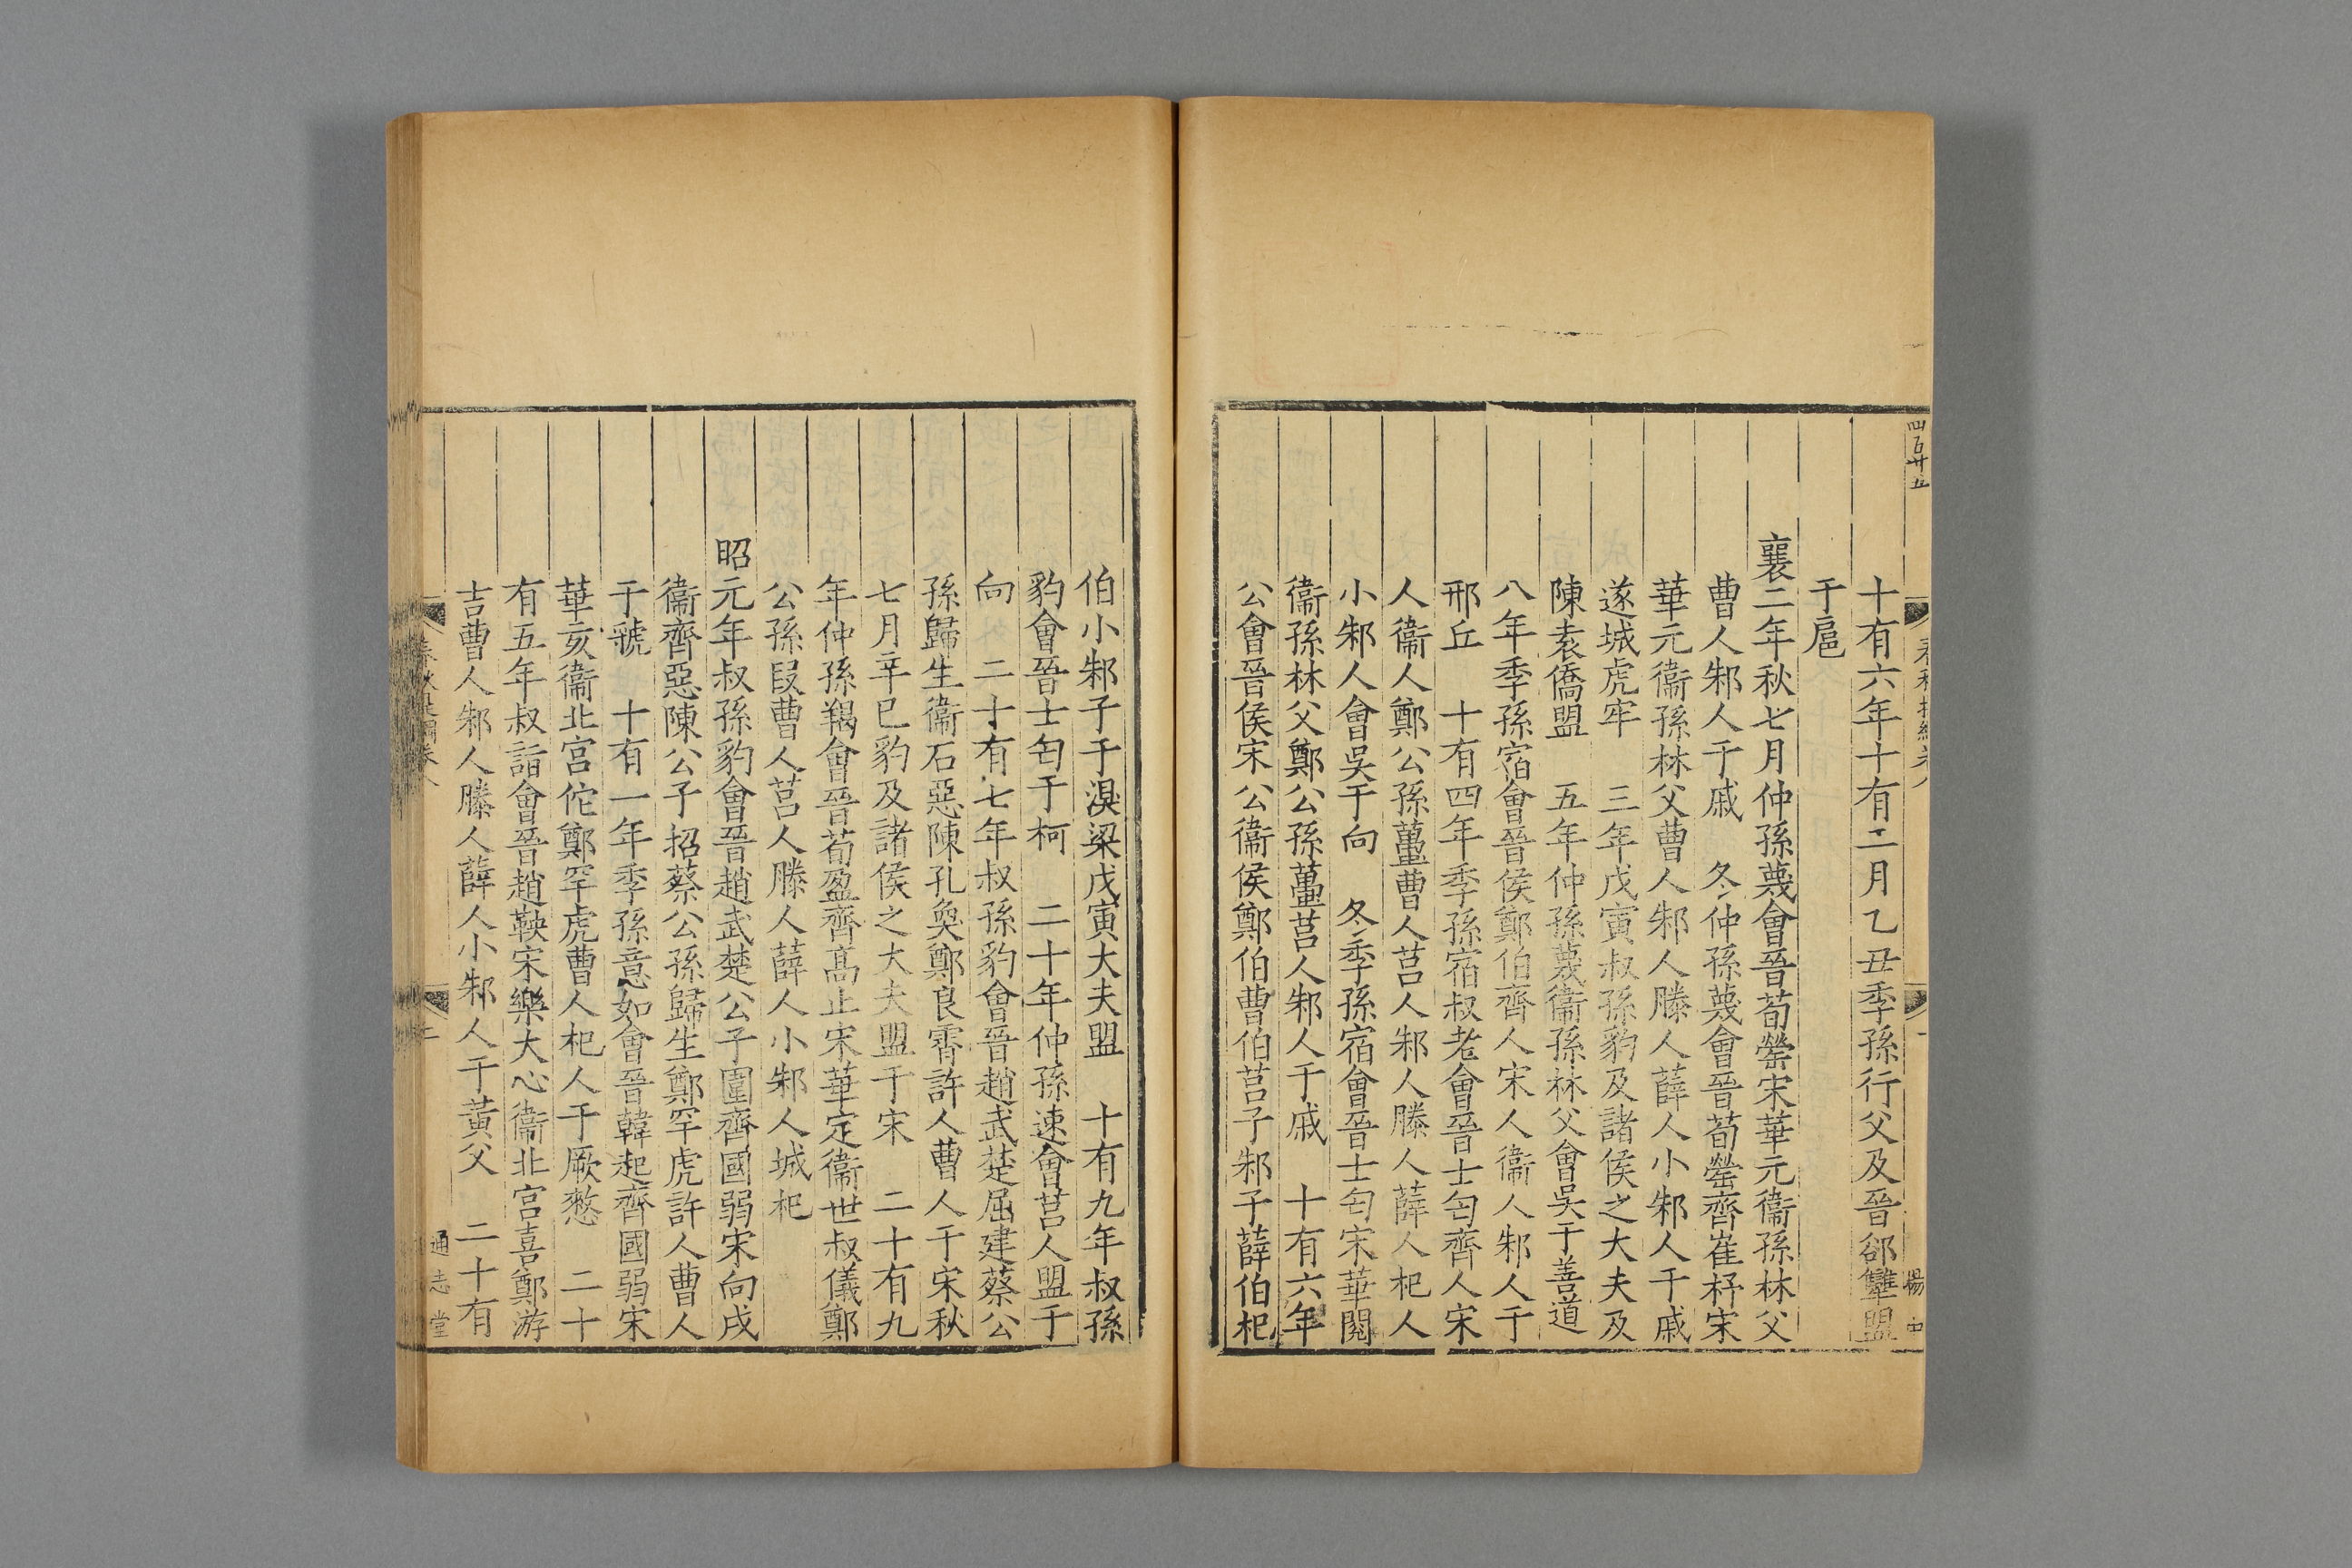 四百廿五
十有六年十有二月乙丑季孫行父及晉郤犨盟
于扈
襄二年秋七月仲孫蔑會晉荀罃宋華元衞孫林父
曹人邾人于戚 冬仲孫蔑會晉荀罃齊崔杼宋
華元衞孫林父曹人邾人滕人薛人小邾人于戚
遂城虎牢 三年戊寅叔孫豹及諸侯之大夫及
陳袁僑盟 五年仲孫蔑衞孫林父會吳于善道
八年季孫宿會晉侯鄭伯齊人宋人衞人邾人于
邢丘 十有四年季孫宿叔老會晉士匄齊人宋
人衞人鄭公孫蠆曹人莒人邾人滕人薛人杞人
小邾人會吳于向 冬季孫宿會晉士匄宋華閱
衞孫林父鄭公孫蠆莒人邾人于戚 十有六年
公會晉侯宋公衞侯鄭伯曹伯莒子邾子薛伯杞
伯小邾子于湨梁戊寅大夫盟 十有九年叔孫
豹會晉士匄于柯 二十年仲孫速會莒人盟于
向 二十有七年叔孫豹會晉趙武楚屈建蔡公
孫歸生衞石惡陳孔奐鄭良霄許人曹人于宋秋
七月辛巳豹及諸侯之大夫盟于宋 二十有九
年仲孫羯會晉荀盈齊高止宋華定衞世叔儀鄭
公孫段曹人莒人滕人薛人小邾人城杞
昭元年叔孫豹會晉趙武楚公子圍齊國弱宋向戌
衞齊惡陳公子招蔡公孫歸生鄭罕虎許人曹人
于虢 十有一年季孫意如會晉韓起齊國弱宋
華亥衞北宮佗鄭罕虎曹人杞人于厥憖 二十
有五年叔詣會晉趙鞅宋樂大心衞北宮喜鄭游
吉曹人邾人滕人薛人小邾人于黃父 二十有
通志堂